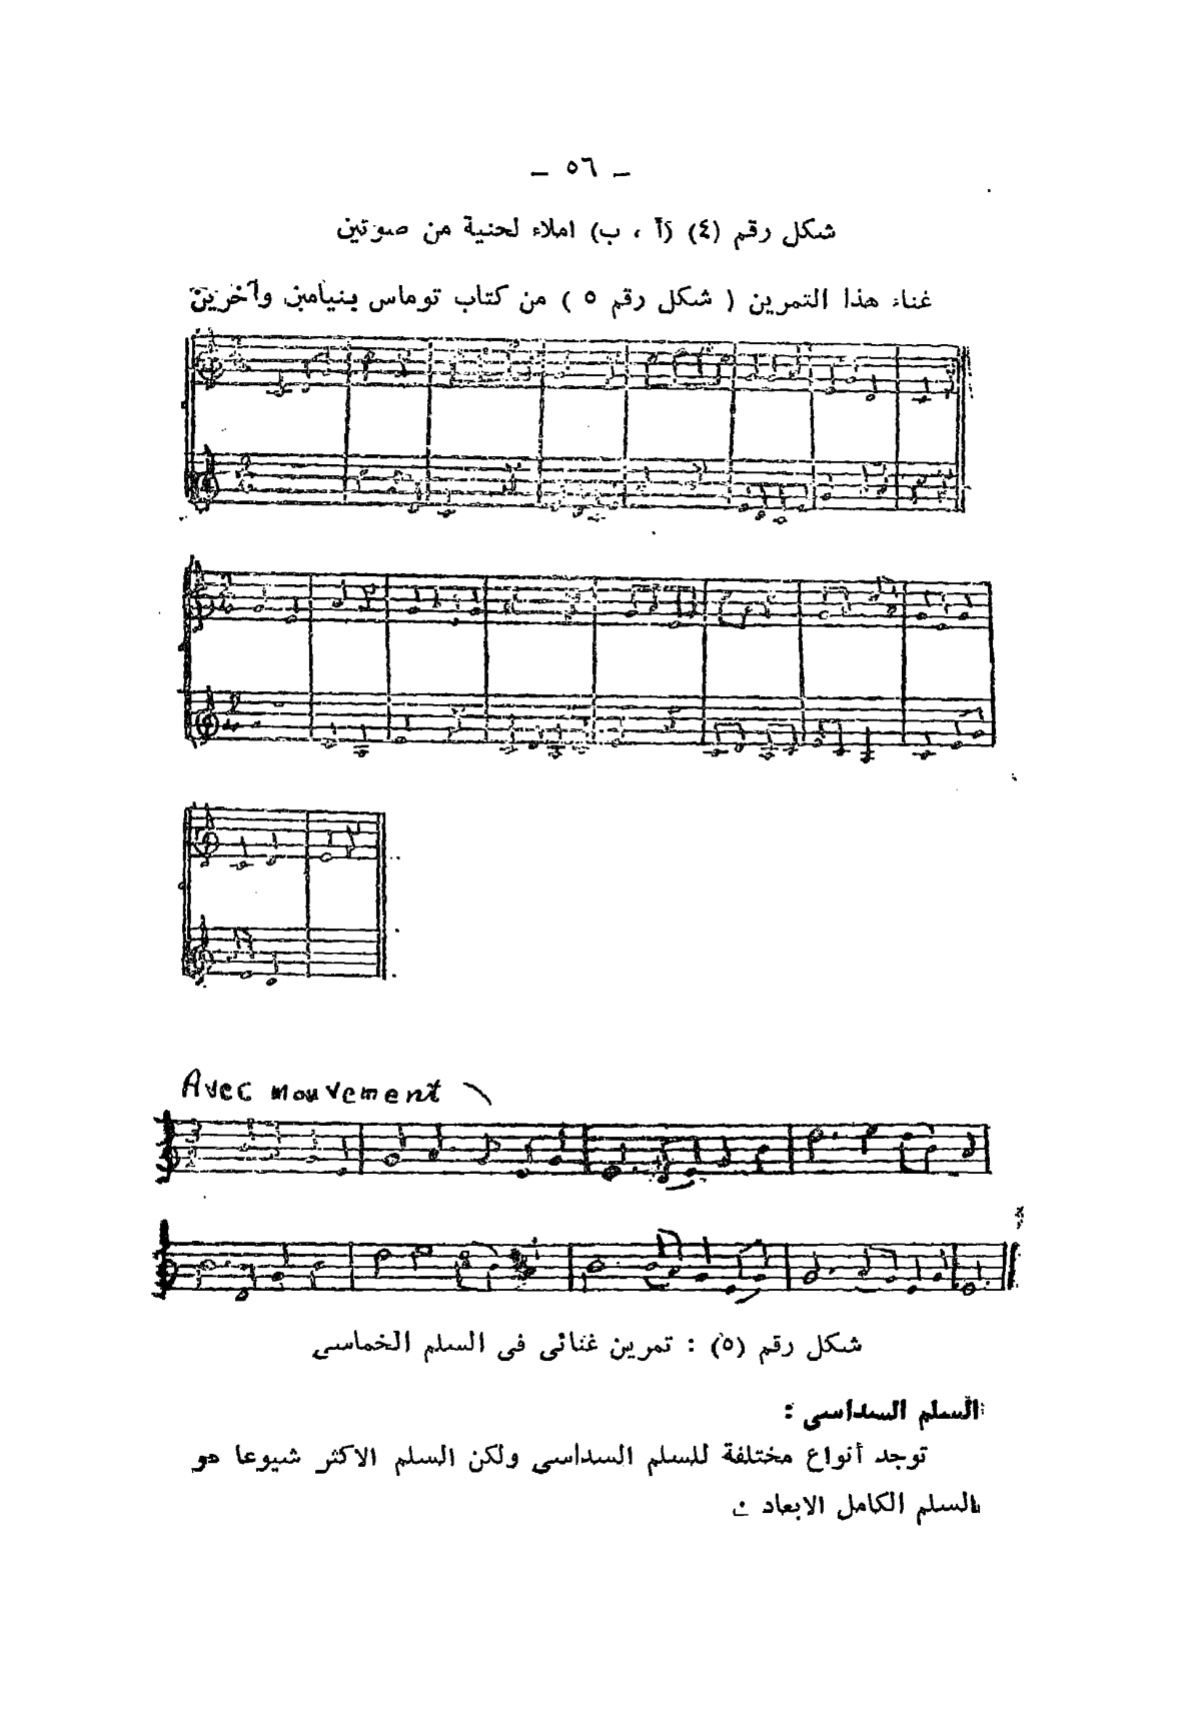 — ٥٦ —
شكل رقم (٤) (أ ، ب) املاء لحنية من صوتين
غناء هذا التمرين ( شكل رقم ٥ ) من كتاب توماس بنيامين وآخرين
Avec mouvement
شكل رقم (٥) : تمرين غنائى فى السلم الخماسى
السلم السداسى :
توجد أنواع مختلفة للسلم السداسى ولكن السلم الاكثر شيوعا هو
السلم الكامل الابعاد :